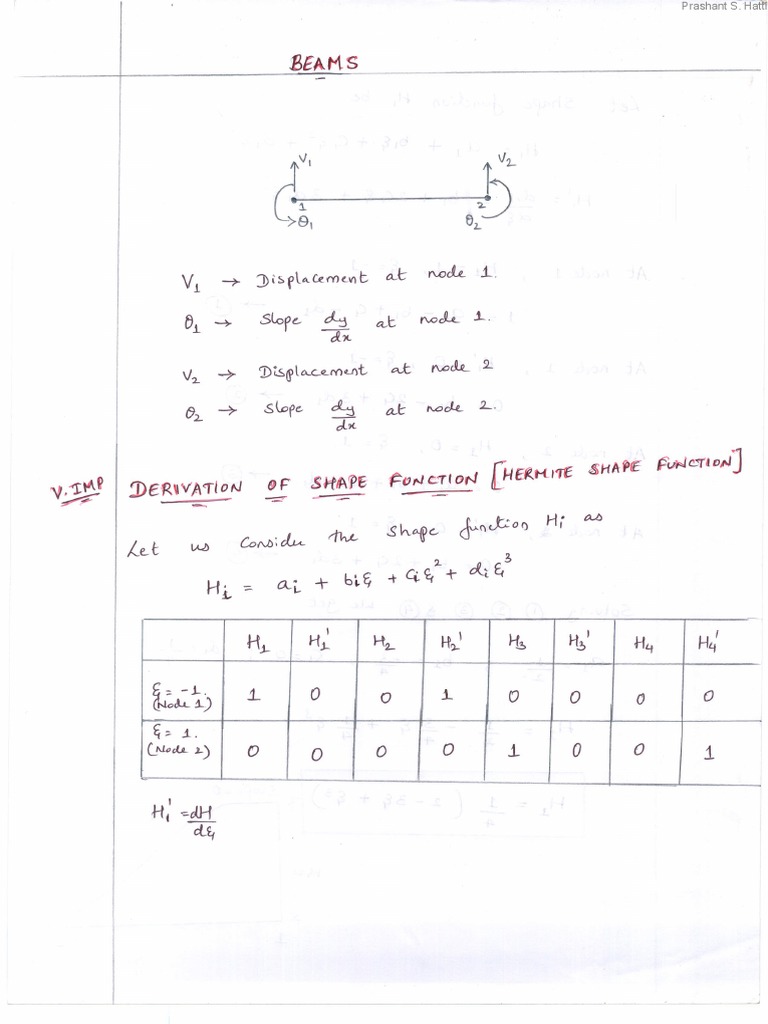 Prashant S. Hatti
BEAMS
V₁ V₂
1 2
θ₁ θ₂
V₁ → Displacement at node 1.
θ₁ → Slope dy/dx at node 1.
V₂ → Displacement at node 2
θ₂ → Slope dy/dx at node 2.
V. IMP DERIVATION OF SHAPE FUNCTION [HERMITE SHAPE FUNCTION]
Let us Consider the Shape function Hi as
Hi = ai + biξ + Ciξ² + diξ³
H₁ H₁' H₂ H₂' H₃ H₃' H₄ H₄'
ξ = -1. (Node 1) 1 0 0 1 0 0 0 0
ξ = 1. (Node 2) 0 0 0 0 1 0 0 1
Hi' = dH/dξ